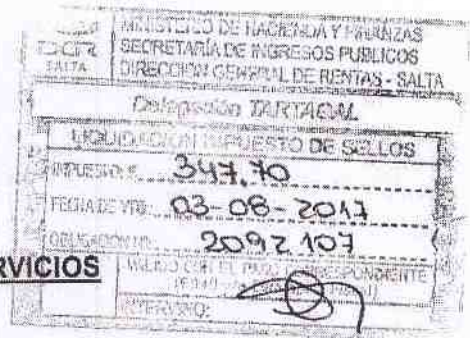 DGR
SALTA
MINISTERIO DE HACIENDA Y FINANZAS
SECRETARÍA DE INGRESOS PUBLICOS
DIRECCION GENERAL DE RENTAS - SALTA
Delegación TARTAGAL
LIQUIDACION IMPUESTO DE SELLOS
IMPUESTO $ 347,70
FECHA DE VTO. 03-08-2017
OBLIGACION Nº 2092107
RVICIOS
VALIDO CON EL PAGO CORRESPONDIENTE
INTERVINO: